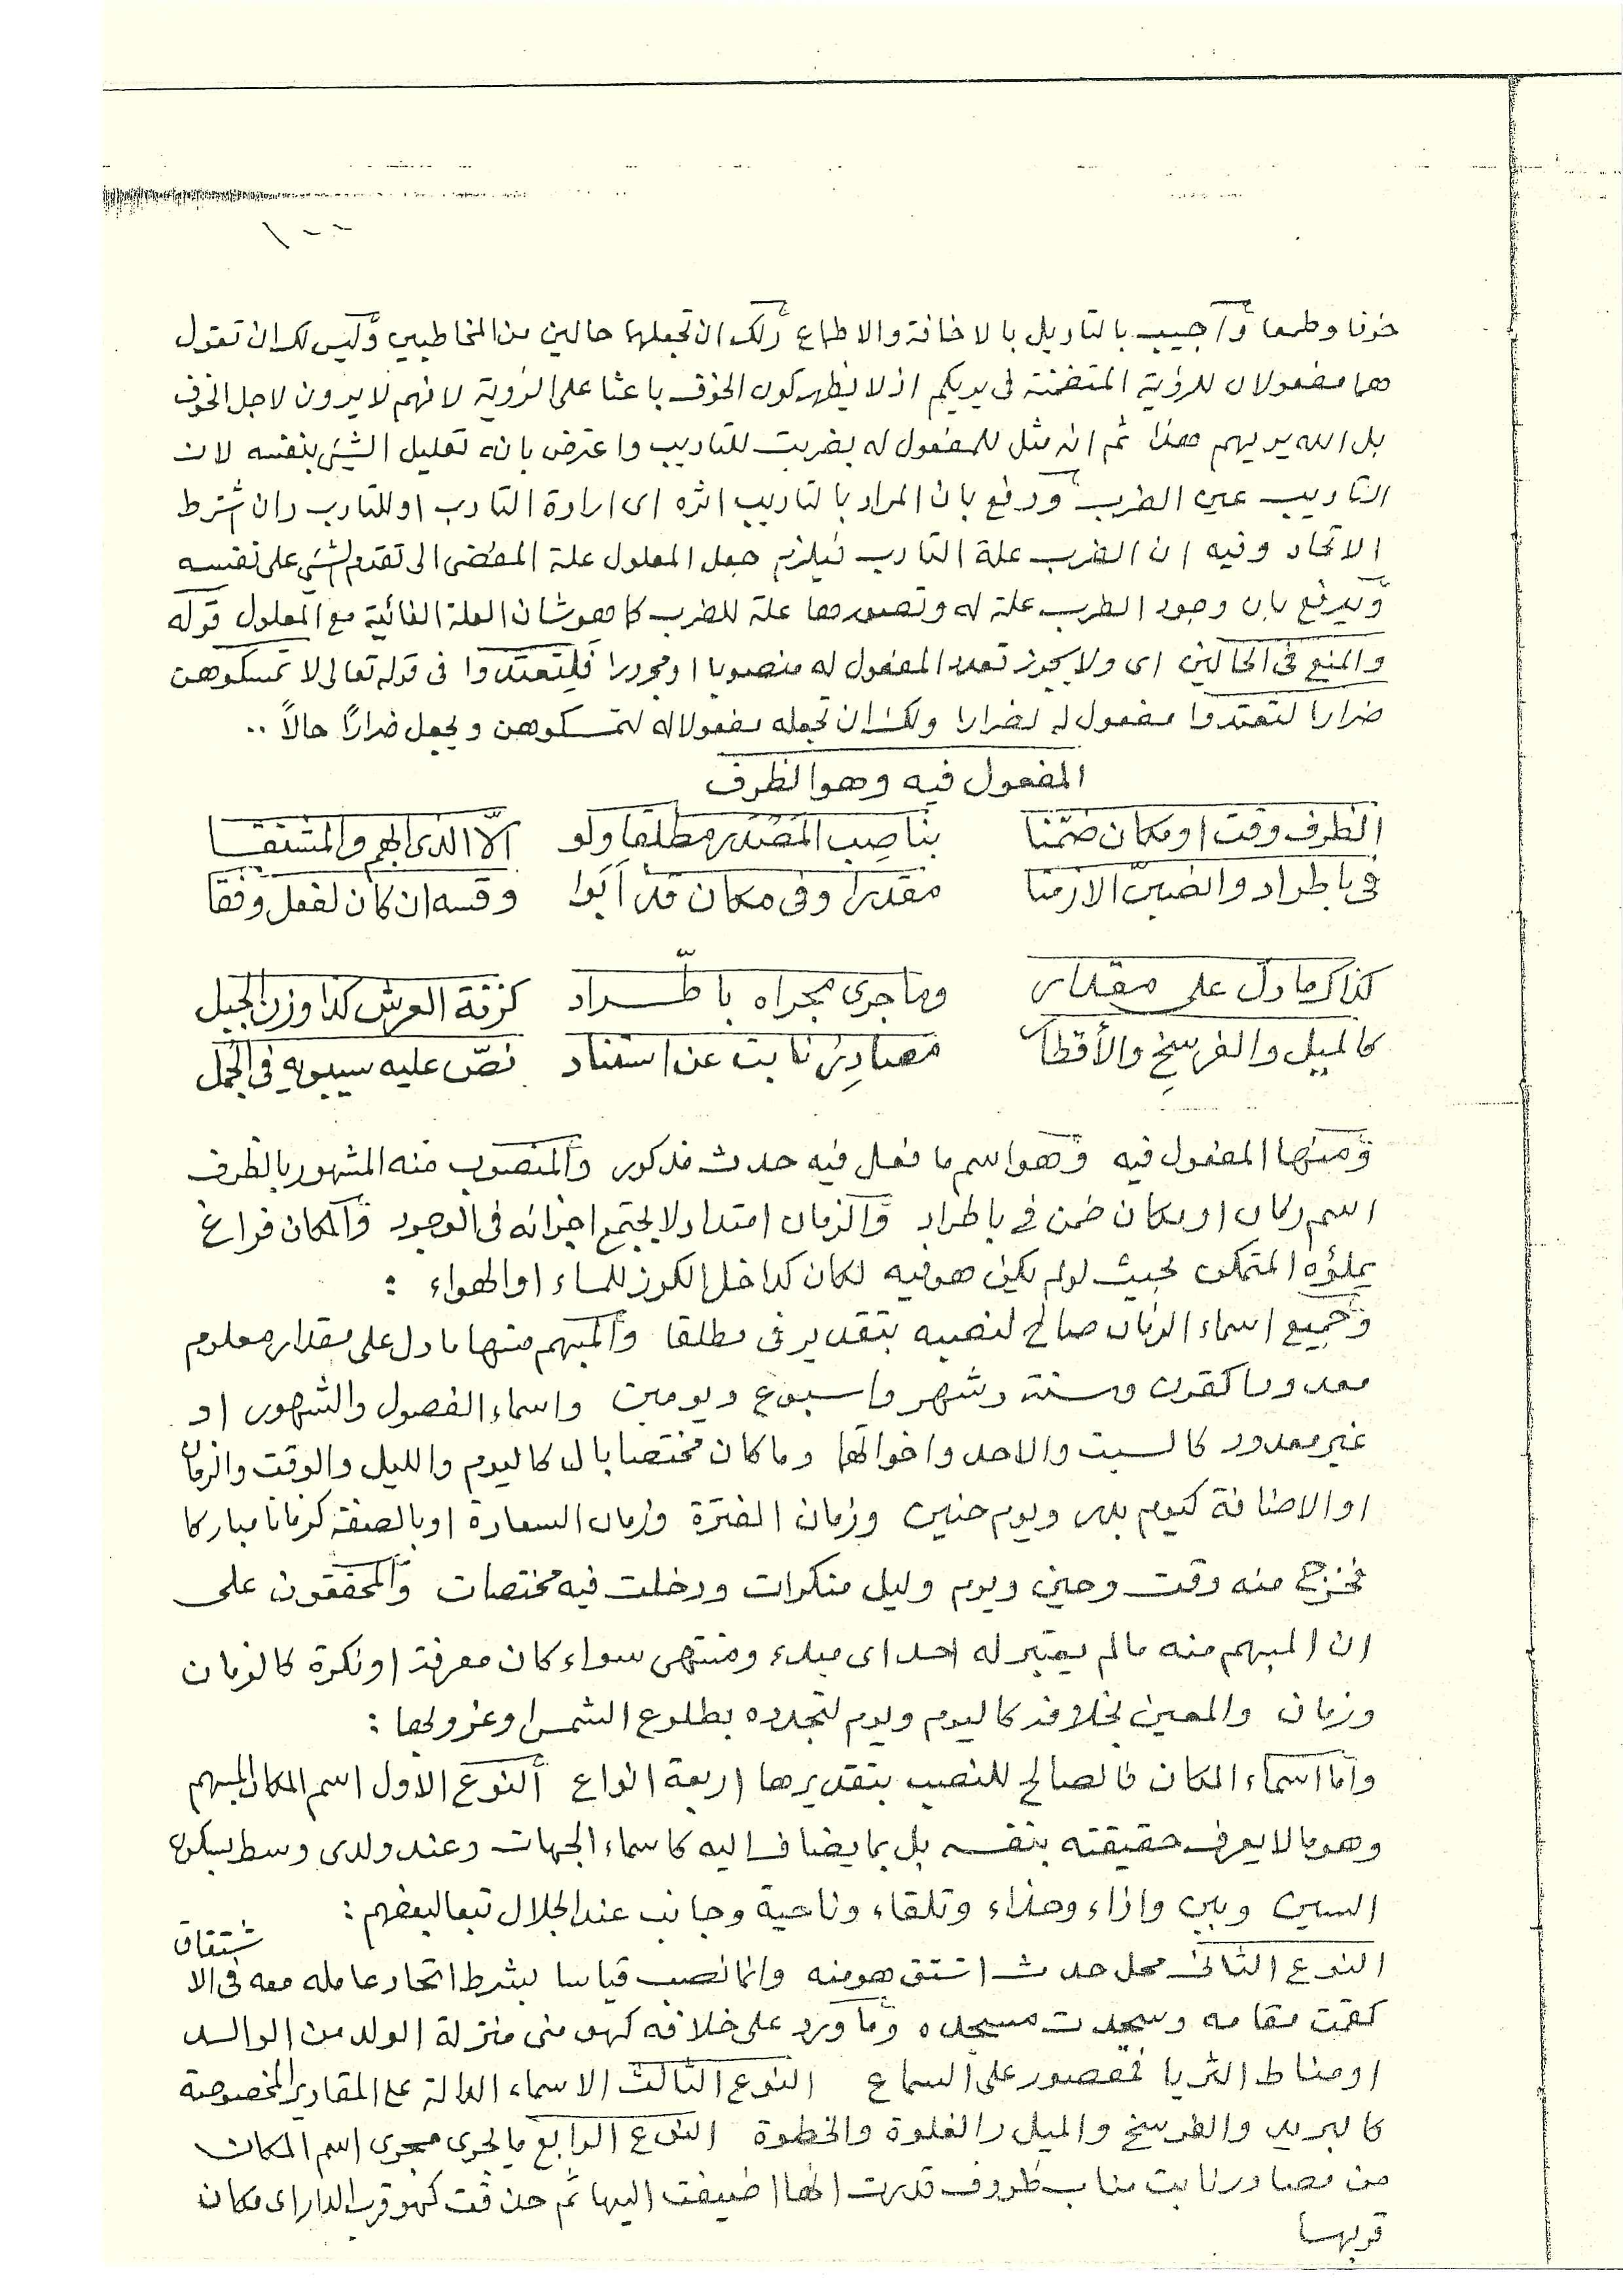 ١٠٠
خوفا وطمعا وأجيب بالتاويل بالاخافة والاطماع ولك ان تجعلها حالين من المخاطبين وليس لك ان تقول
هما مفعولان للرؤية المتضمنة في يريكم اذ لا يظهر كون الخوف باعثا على الرؤية لانهم لا يرون لاجل الخوف
بل الله يريهم هذا ثم انه مثل للمفعول له بضربت للتاديب واعترض بانه تعليل الشيئ بنفسه لان
التاديب عين الضرب ودفع بان المراد بالتاديب اثره اى ارادة التادب او للتادب وان اشترط
الاتحاد وفيه ان الضرب علة التادب فيلزم جعل المعلول علة المفضى الى تقدم الشيئ على نفسه
ويدفع بان وجود الضرب علة له وتصورها علة للضرب كما هو شان العلة الغائية مع المعلول قوله
والمنع فى الحالين اى ولا يجوز تعدد المفعول له منصوبا او مجرورا فلتعتدوا فى قوله تعالى لا تمسكوهن
ضرارا لتعتدوا مفعول له لضرارا ولك ان تجعله مفعولا له لتمسكوهن ويجعل ضرارًا حالاً ..
المفعول فيه وهو الظرف
الظرف وقت او مكان ضمّنا بناصِب المَصْدَر مطلقا ولو الّا الذى ابهم والمشتقا
في باطراد وانصبنّ الازمنا مقدرا وفى مكان قد اَبَوا وقسه ان كان لفعل وفقا
كذاك ما دل على مقدار وما جرى مجراه باطّراد كزنة العرش كذا وزن الجبل
كالميل والفرسخِ والأقطار مصادِرٌ نابت عن استناد نصّ عليه سيبويهِ فى الجُمل
ومنها المفعول فيه وهو اسم ما فعل فيه حدث مذكور والمنصوب منه المشهور بالظرف
اسم زمان او مكان ضمن في باطراد والزمان امتداد لا يجتمع اجزائه فى الوجود والمكان فراغ
يملؤه المتمكن بحيث لو لم يكن هو فيه لكان كداخل الكوز للماء او الهواء :
وجميع اسماء الزمان صالح لنصبه بتقدير فى مطلقا والمبهم منها ما دل على مقدار معلوم
معدودا كقرن وسنة وشهر واسبوع ويومين واسماء الفصول والشهور او
غير معدود كالسبت والاحد واخواتها وما كان مختصا بال كاليوم والليل والوقت والزمان
او الاضافة كيوم بدر ويوم حنين وزمان الفترة وزمان السعادة او بالصفة كزمانا مباركا
فخرج منه وقت وحين ويوم وليل منكرات ودخلت فيه مختصات والمحققون على
ان المبهم منه ما لم يعتبر له احد اى مبدء ومنتهى سواء كان معرفة او نكرة كالزمان
وزمان والمعين بخلافه كاليوم ويوم لتجدده بطلوع الشمس وغروبها :
واما اسماء المكان فالصالح للنصب بتقديرها اربعة انواع ألنوع الاول اسم المكان المبهم
وهو ما لا يعرف حقيقته بنفسه بل بما يضاف اليه كاسماء الجهات وعند ولدى وسط بسكون
السين وبين وازاء وحذاء وتلقاء وناحية وجانب عند الجلال تبعا لبعضهم :
النوع الثانى محل حدث اشتق هو منه وانما نصب قياسا بشرط اتحاد عامله معه فى الا شتقاق
كقمت مقامه وسجدت مسجده وما ورد على خلافه كهو منى منزلة الولد من الوالد
او مناط الثريا فمقصور على السماع النوع الثالث الاسماء الدالة على المقادير المخصوصة
كالبريد والفرسخ والميل والغلوة والخطوة النوع الرابع ما يجرى مجرى اسم المكان
من مصادر نابت مناب ظروف قدرت انها اضيفت اليها ثم حذفت كهو قرب الدار اى مكان
قربها